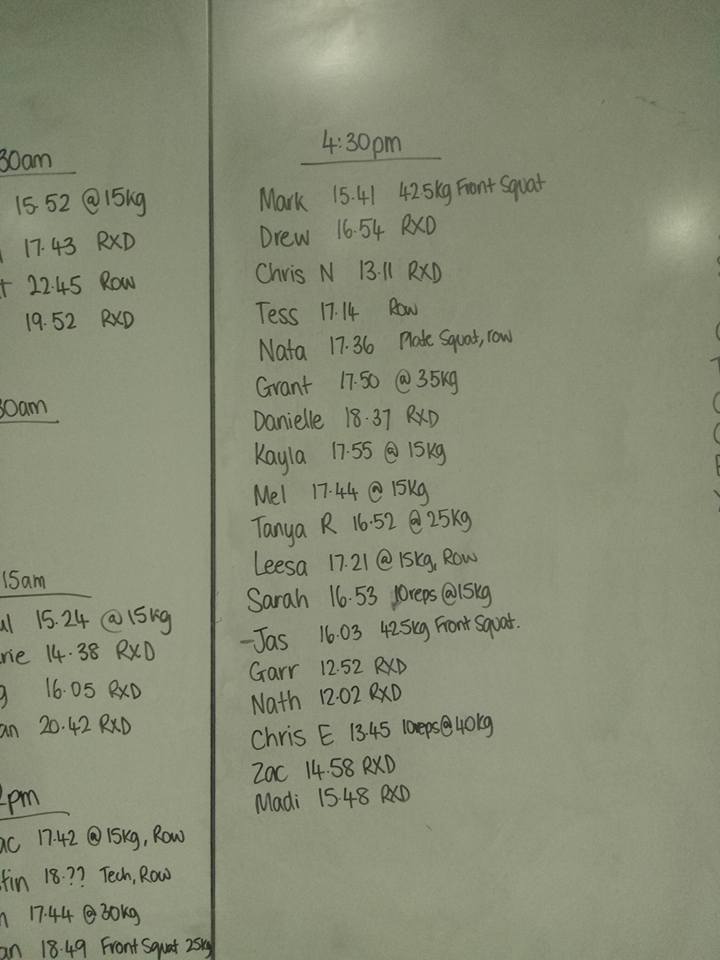 30am
15.52 @15kg
17.43 RXD
22.45 Row
19.52 RXD
30am
15am
15.24 @15kg
rie 14.38 RXD
g 16.05 RXD
an 20.42 RXD
2pm
ac 17.42 @15kg, Row
tin 18.?? Tech, Row
n 17.44 @30kg
an 18.49 Front Squat 25kg
4:30pm
Mark 15.41 42.5kg Front Squat
Drew 16.54 RXD
Chris N 13.11 RXD
Tess 17.14 Row
Nata 17.36 Plate Squat, row
Grant 17.50 @ 35kg
Danielle 18.37 RXD
Kayla 17.55 @ 15kg
Mel 17.44 @ 15kg
Tanya R 16.52 @ 25kg
Leesa 17.21 @ 15kg, Row
Sarah 16.53 10reps @15kg
-Jas 16.03 42.5kg Front Squat.
Garr 12.52 RXD
Nath 12.02 RXD
Chris E 13.45 10reps@40kg
Zac 14.58 RXD
Madi 15.48 RXD